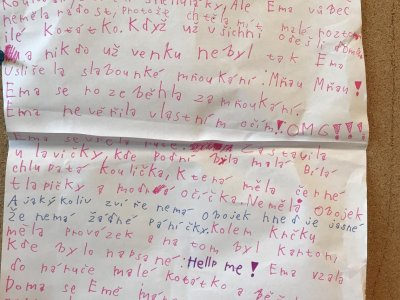 štěňátky, Ale Ema vůbec
neměla radost, protože chtěla mít malé, rozto
ilé koťátko. Když už všichni odešli domů
a nikdo už venku nebyl tak Ema
Uslišela slabounké mňoukání: Mňau Mňau!
Ema se rozeběhla za mňoukání.
Ema nevěřila vlastním očím! OMG!!!
Ema se Zastavila
u lavičky, kde pod ní byla malá Bílá
chlupatá koulička, Která měla černé
tlapičky a modrá očička. Neměla obojek
A jakýkoliv zvíře nemá obojek hned je jasné
že nemá žádné páníčky. Kolem krčku
měla provázek a na tom byl karton,
Kde bylo napsané: Help me! Ema vzala
do náruče malé koťátko a
Doma se Emě